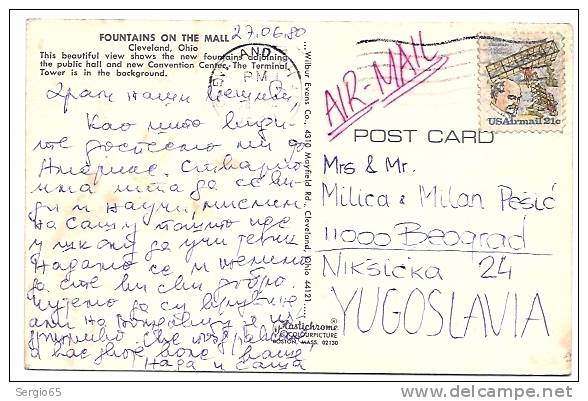 FOUNTAINS ON THE MALL
Cleveland, Ohio
This beautiful view shows the new fountains adjoining
the public hall and new Convention Center. The Terminal
Tower is in the background.
27.06.80
PM
Драги наши Пешићи,
Као што види-
те доспесмо ми до
Америке. Стварно
има шта да се ви-
ди и научи, мислим
на Сашу пошто иде
у школу да учи
Надамо се и желимо
да сте ви сви добро.
Чујемо да су
на
Све
а вас двоје воле ваше
Нада и Саша
Wilbur Evans Co., 4310 Mayfield Rd., Cleveland, Ohio 44121
Plastichrome®
COLOURPICTURE
BOSTON, MASS. 02130
AIR-MAIL
USAirmail 21c
POST CARD
Mrs & Mr.
Milica & Milan Pešić
11000 Beograd
Nikšička 24
YUGOSLAVIA
Sergio65
delcampe.net